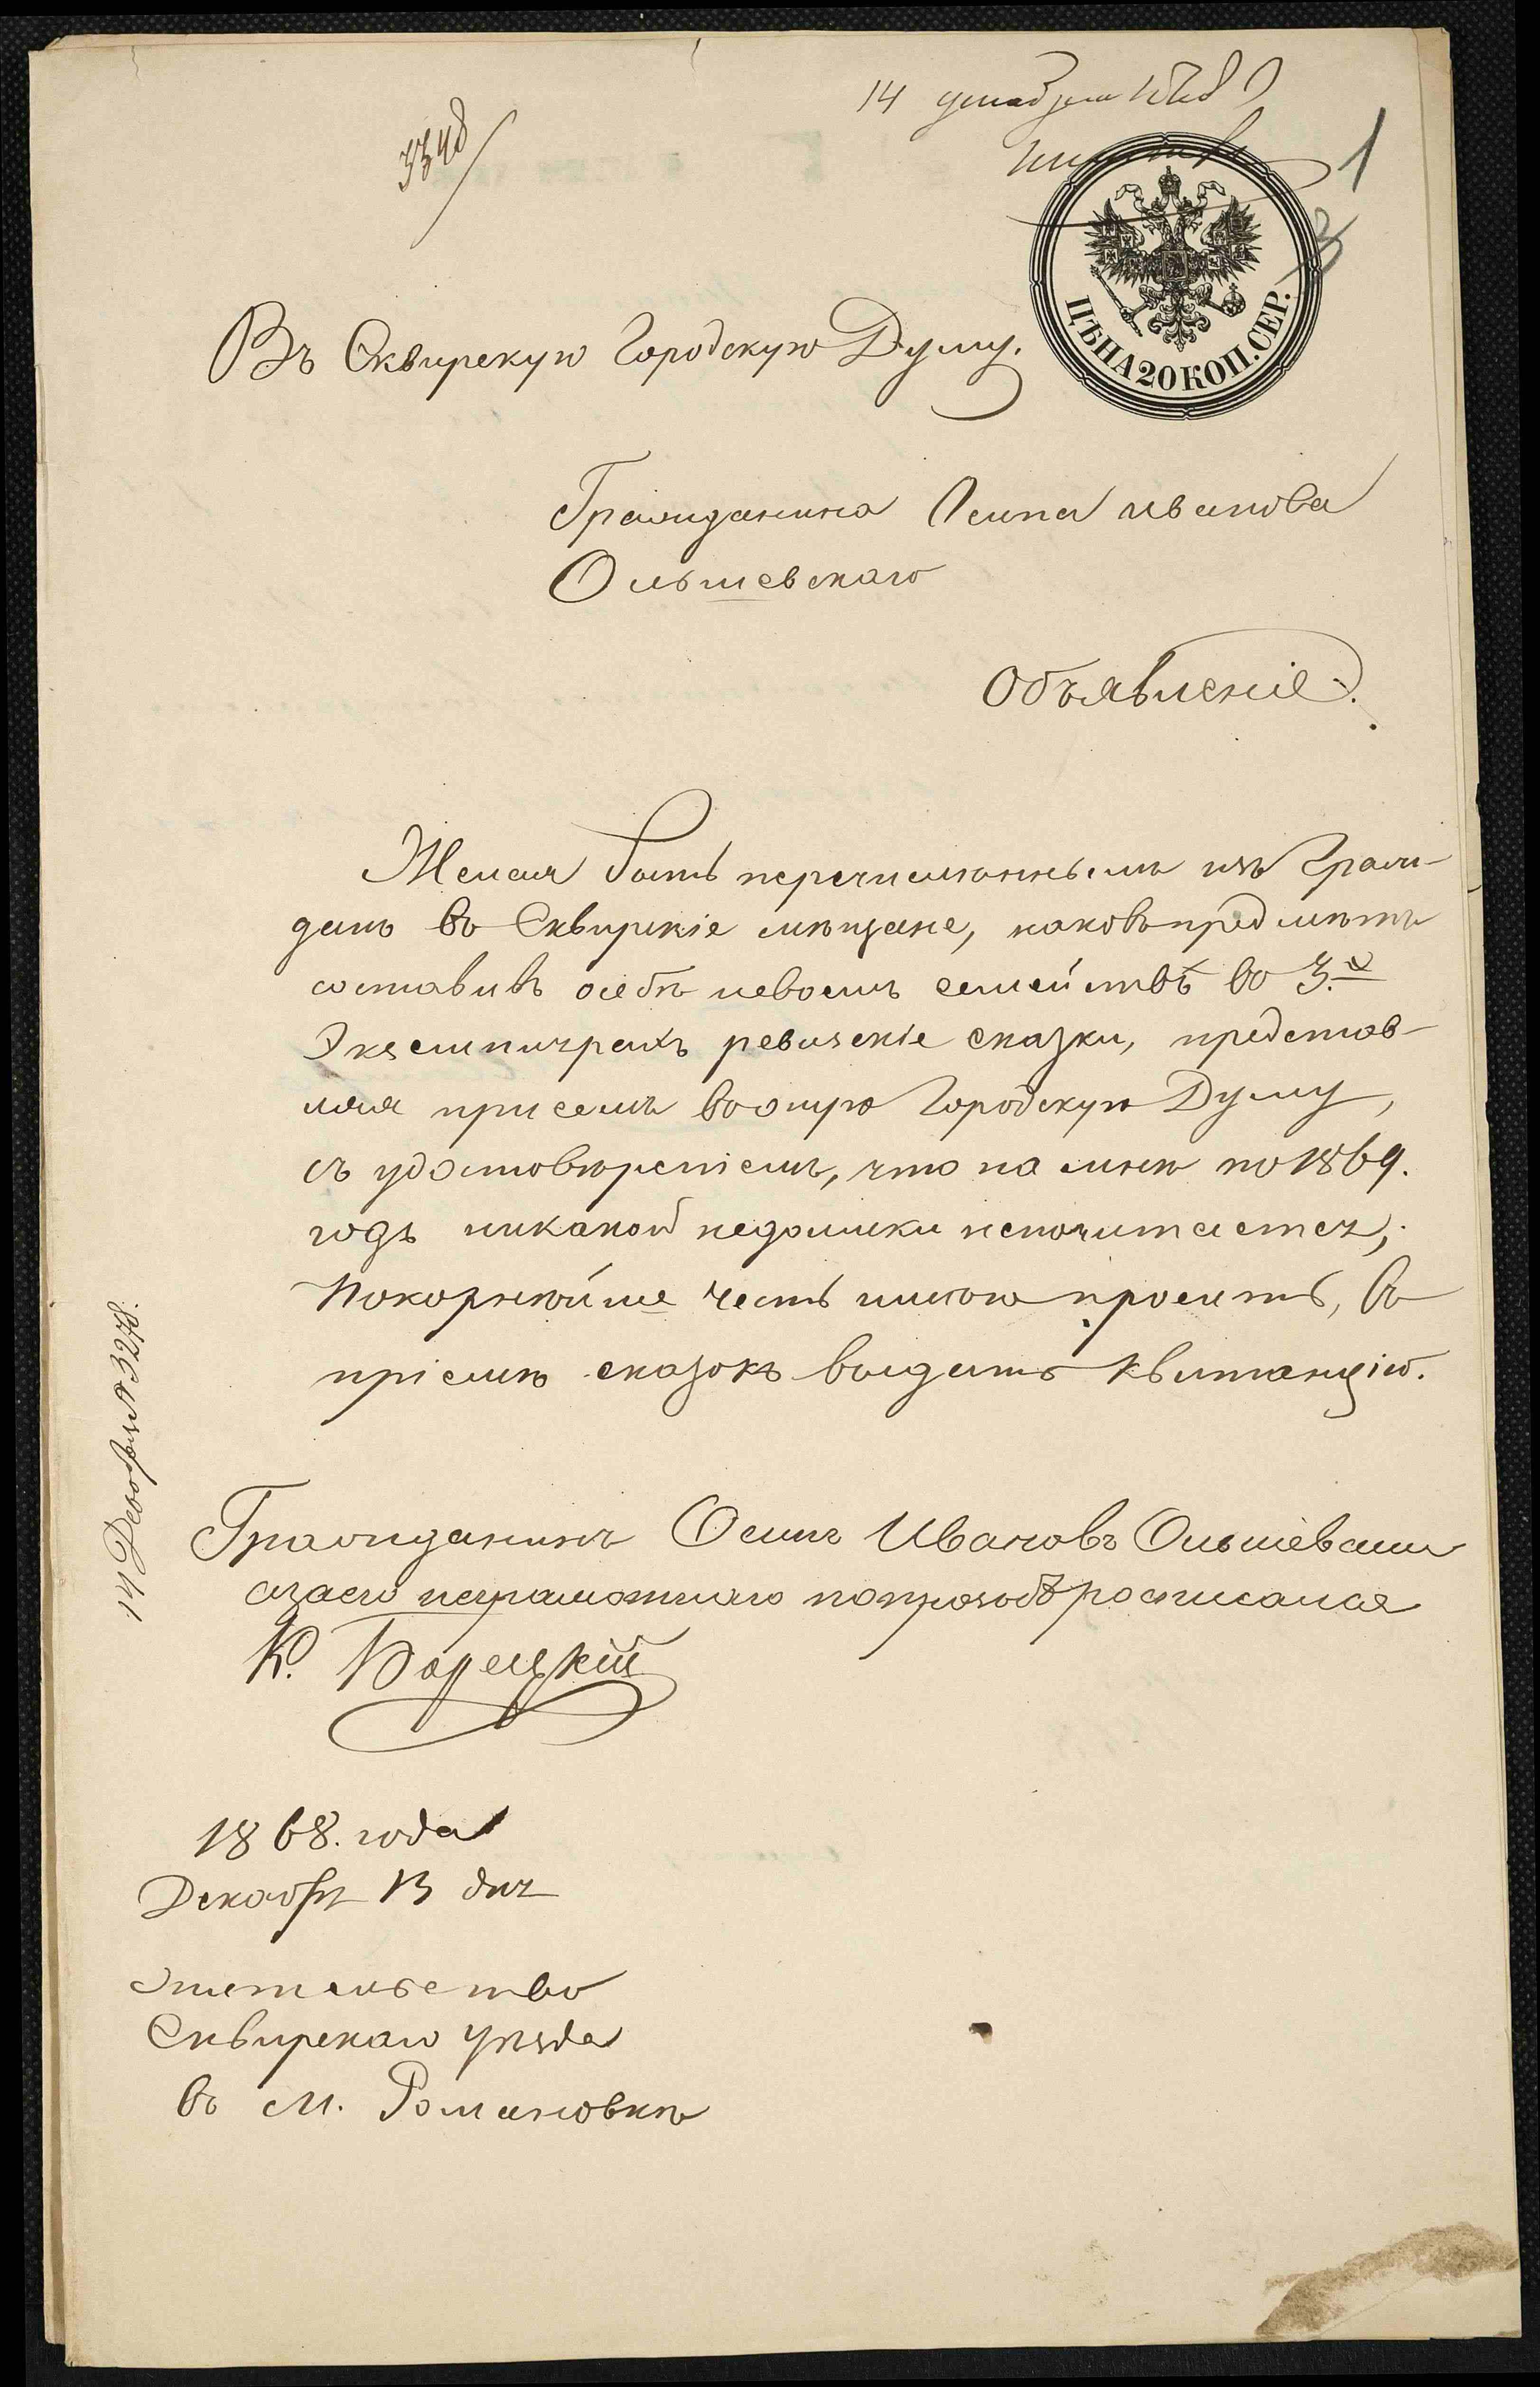 14 декабря 1868
3348
1
3
ЦѢНА 20 КОП. СЕР.
Въ Сквирскую Городскую Думу.
Гражданина Осипа Иванова
Ольшевскаго
Объявленіе.
Желая быть перечисленнымъ изъ Граж-
данъ въ Сквирскіе мѣщане, и
составивъ о себѣ и своемъ семействѣ во 3.х
Экземплярахъ ревизскіе сказки, представ-
ляя при семъ во оную Городскую Думу,
съ удостовѣреніемъ, что на мнѣ по 1869.
годъ никакой недоимки несчитается;
Покорнейше честь имѣю просить, въ
пріемѣ сказокъ выдать квитанцію.
Гражданинъ Осипъ Ивановъ Ольшевскій
а за его неграмотнаго по прозьбѣ росписался
К. Борецкій
1868. года
Декабря 13 дня
Жительство
Сквирскаго уѣзда
въ м. Романовкѣ
14 Декабря № 3278.